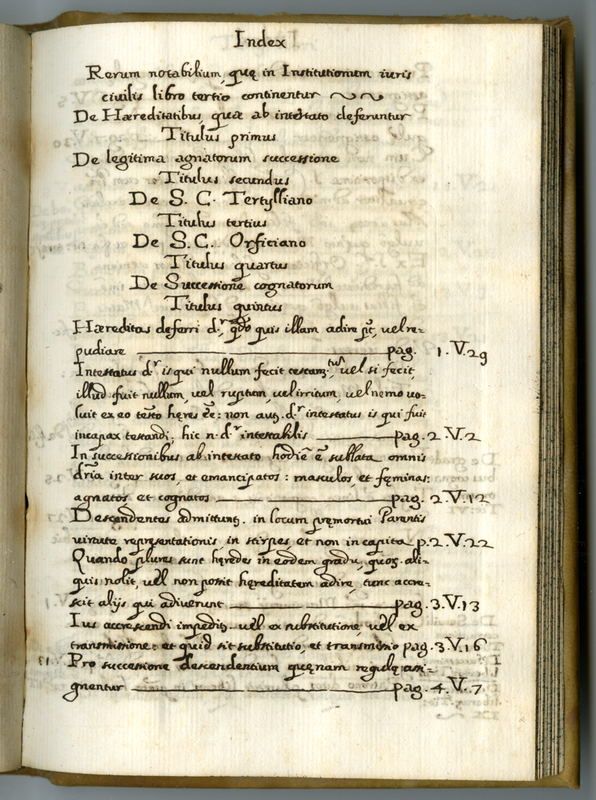 Index
Rerum notabilium, quę in Institutionum iuris
civilis libro tertio continentur
De Hæreditatibus, quæ ab intestato deferuntur
Titulus primus
De legitima agnatorum successione
Titulus secundus
De S. C. Tertylliano
Titulus tertius
De S. C. Orficiano
Titulus quartus
De Successione cognatorum
Titulus quintus
Hæreditas deferri d.r, qdo quis illam adire pt, vel re=
pudiare pag. 1. V. 29
Intestatus d.r is qui nullum fecit testam.tum, vel si fecit,
illud fuit nullum, vel ruptum, vel irritum, vel nemo vo=
luit ex eo testo hęres eē: non aut. d.r intestatus is qui fuit
incapax testandi. hic n. d.r intestabilis pag. 2. V. 2
In successionibus ab intestato hodiè ē sublata omnis
dr̄ia inter suos, et emancipatos: masculos et fęminas:
agnatos et cognatos pag. 2. V. 12
Descendentes admittunt. in locum pręmortui Parentis
virtute repręsentationis in stirpes et non in capita p. 2. V. 22
Quando plures sunt hęredes in eodem gradu, quos. ali=
quis nolit, vel non possit hęreditatem adire, tunc accre=
scit alijs qui adiverunt pag. 3. V. 13
Ius accrescendi impedit. vel ex substitutione, vel ex
transmissione: et quid sit substitutio, et transmissio pag. 3. V. 16
Pro successione descendentium quęnam regulę assi=
gnentur pag. 4. V. 7